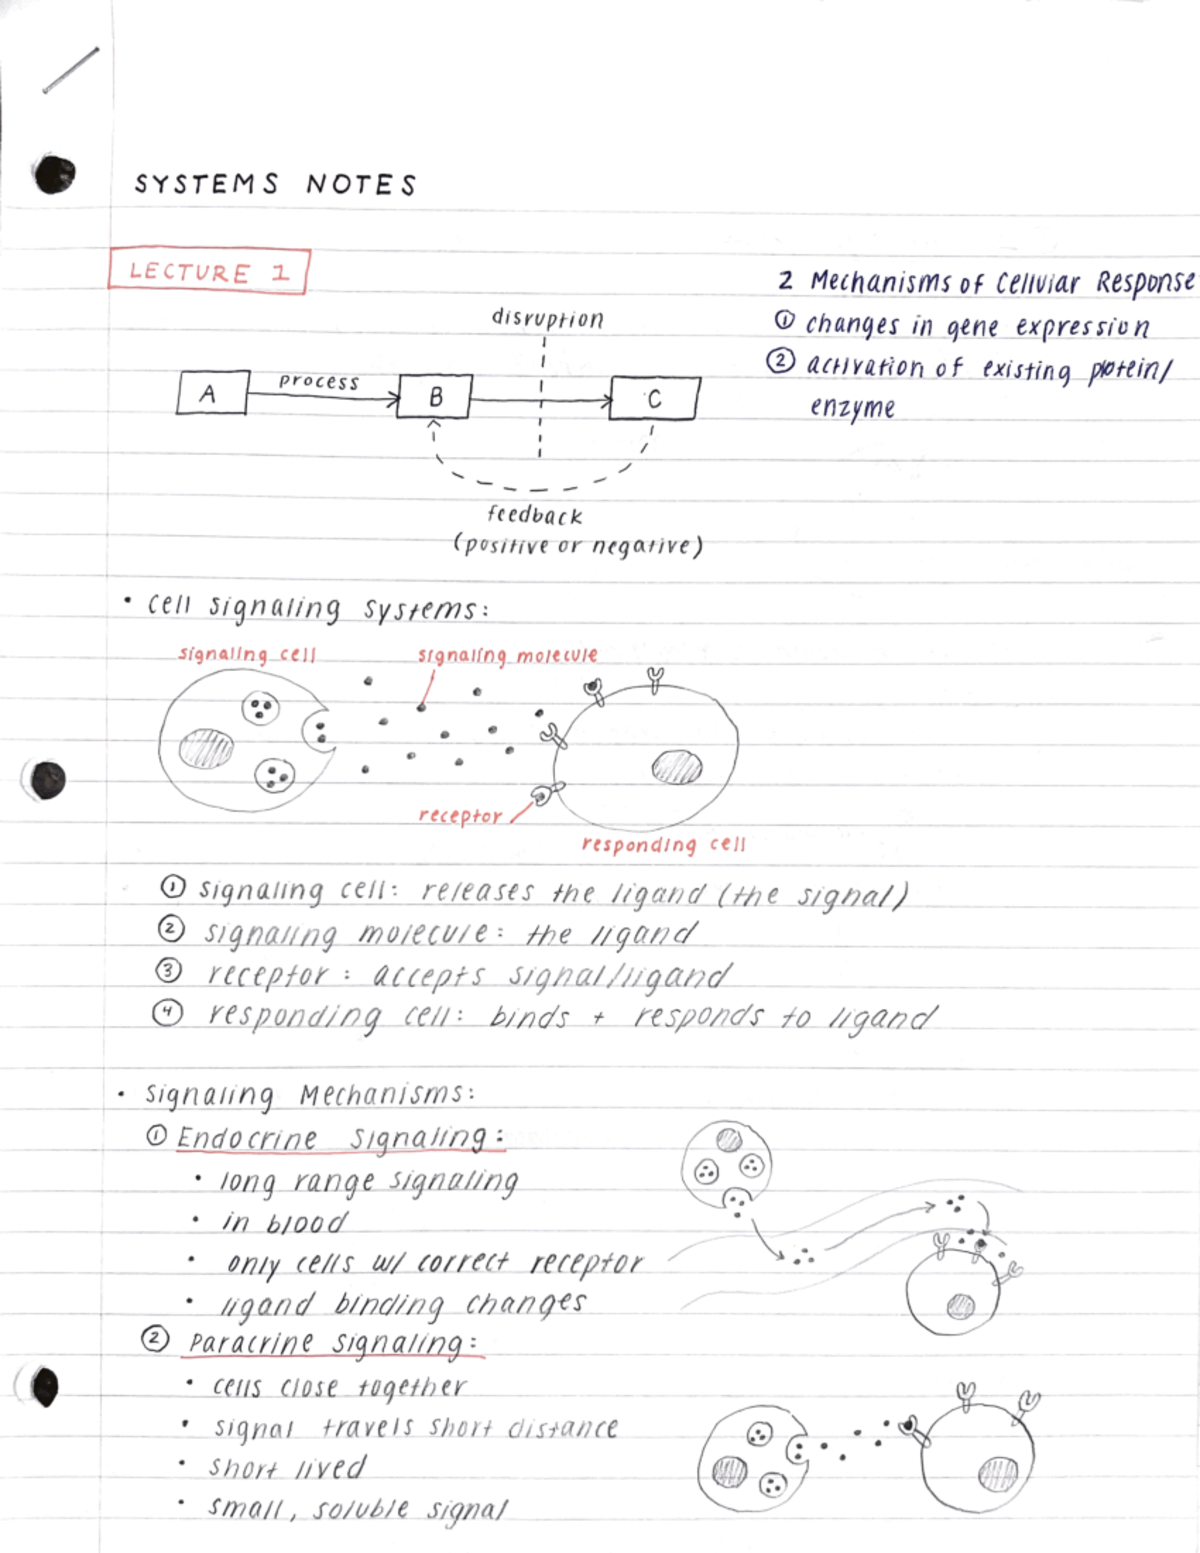 SYSTEMS NOTES
LECTURE 1
2 Mechanisms of Cellular Response
① changes in gene expression
② activation of existing protein/
enzyme
disruption
A
process
B
C
feedback
(positive or negative)
• Cell signaling systems:
signaling cell
signaling molecule
receptor
responding cell
① signaling cell: releases the ligand (the signal)
② signaling molecule: the ligand
③ receptor: accepts signal/ligand
④ responding cell: binds + responds to ligand
• Signaling Mechanisms:
① Endocrine signaling:
• long range signaling
• in blood
• only cells w/ correct receptor
• ligand binding changes
② Paracrine signaling:
• cells close together
• signal travels short distance
• short lived
• small, soluble signal